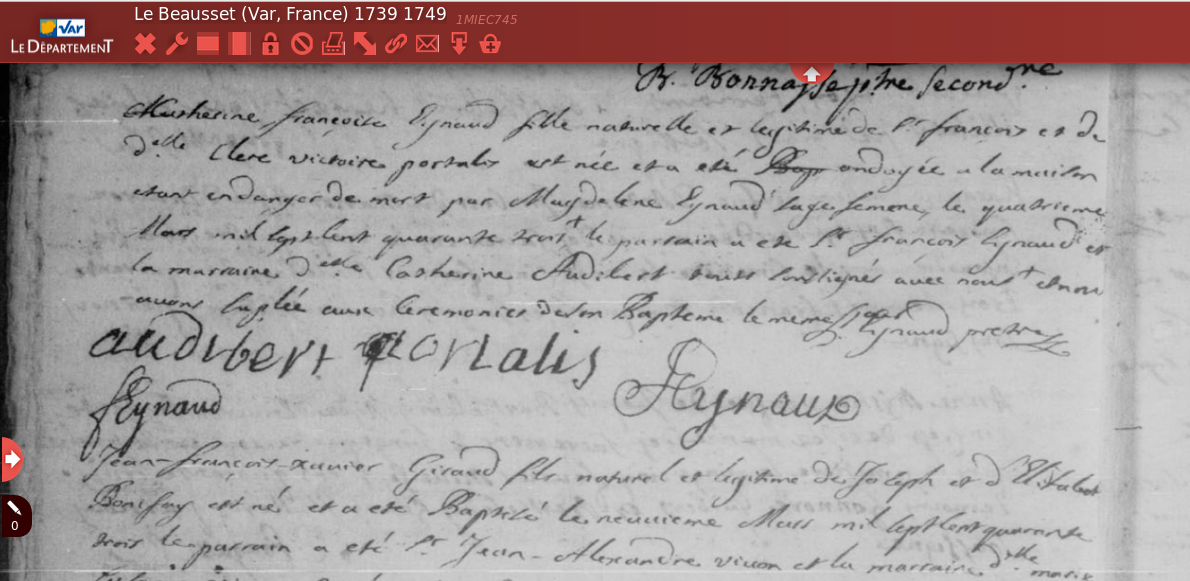 Le Beausset (Var, France) 1739 1749 1MIEC745
VAR
LE DÉPARTEMENT
B. Bonnasse ptre secondre
Catherine françoise Eynaud fille naturelle et legitime de Sr françois et de
delle Clere victoire portalis est née et a eté Bap ondoyée a la maison
etant en danger de mort par Magdelene Eynaud sage femme, le quatrieme
Mars mil sept cent quarante trois le parrain a eté Sr françois Eynaud et
la marraine delle Catherine Audibert tous soussignés avec nous et nous
avons suplée aux Ceremonies de son Bapteme le meme jour Eynaud pretre
audibert portalis
fEynaud Eynaud
Jean-françois-xavier Giraud fils naturel et legitime de Joseph et d'Elisabet
Bonifay est né et a eté Baptisé le neuvieme Mars mil sept cent quarante
trois le parrain a eté Sr Jean-Alexandre vicon et la marraine delle marie
0